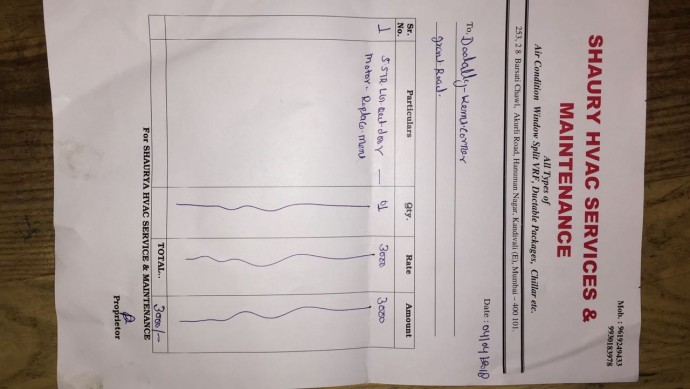 Mob. : 9619249433
9930183978
SHAURY HVAC SERVICES &
MAINTENANCE
All Types of
Air Condition Window Split VRF, Ductable Packages, Chillar etc.
253, 2 8 Barsati Chawl, Akurli Road, Hanuman Nagar, Kandivali (E), Mumbai - 400 101.
Date : 04/04/2018
To, Doolally - Kemt corner
Grant Road.
Sr. No. Particulars Qty. Rate Amount
1 5.5TR Lin out door — 01 3000 3000
Motor - Replace ment
TOTAL.. 3000/-
For SHAURYA HVAC SERVICE & MAINTENANCE
Proprietor